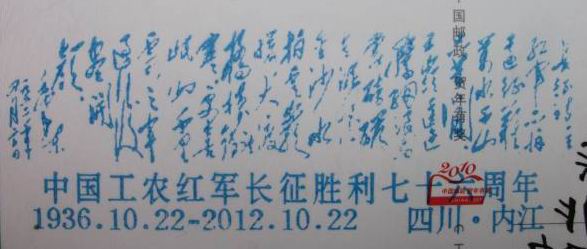 红军不怕
远征难
万水千山
五岭逶迤
腾细浪
磅礴
金沙水
拍云崖
暖大渡
桥横铁索
寒更喜
岷山千里
雪三军
过后
尽开
颜
毛泽东
国邮政 贺年有奖
2010
中国工农红军长征胜利七十六周年
1936.10.22-2012.10.22 四川·内江